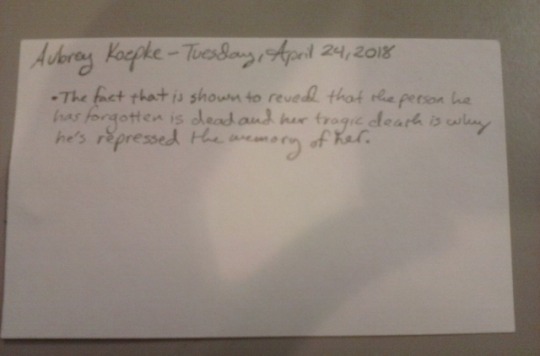 Aubrey Koepke - Tuesday, April 24, 2018
• The fact that is shown to reveal that the person he
has forgotten is dead and her tragic death is why
he's repressed the memory of her.